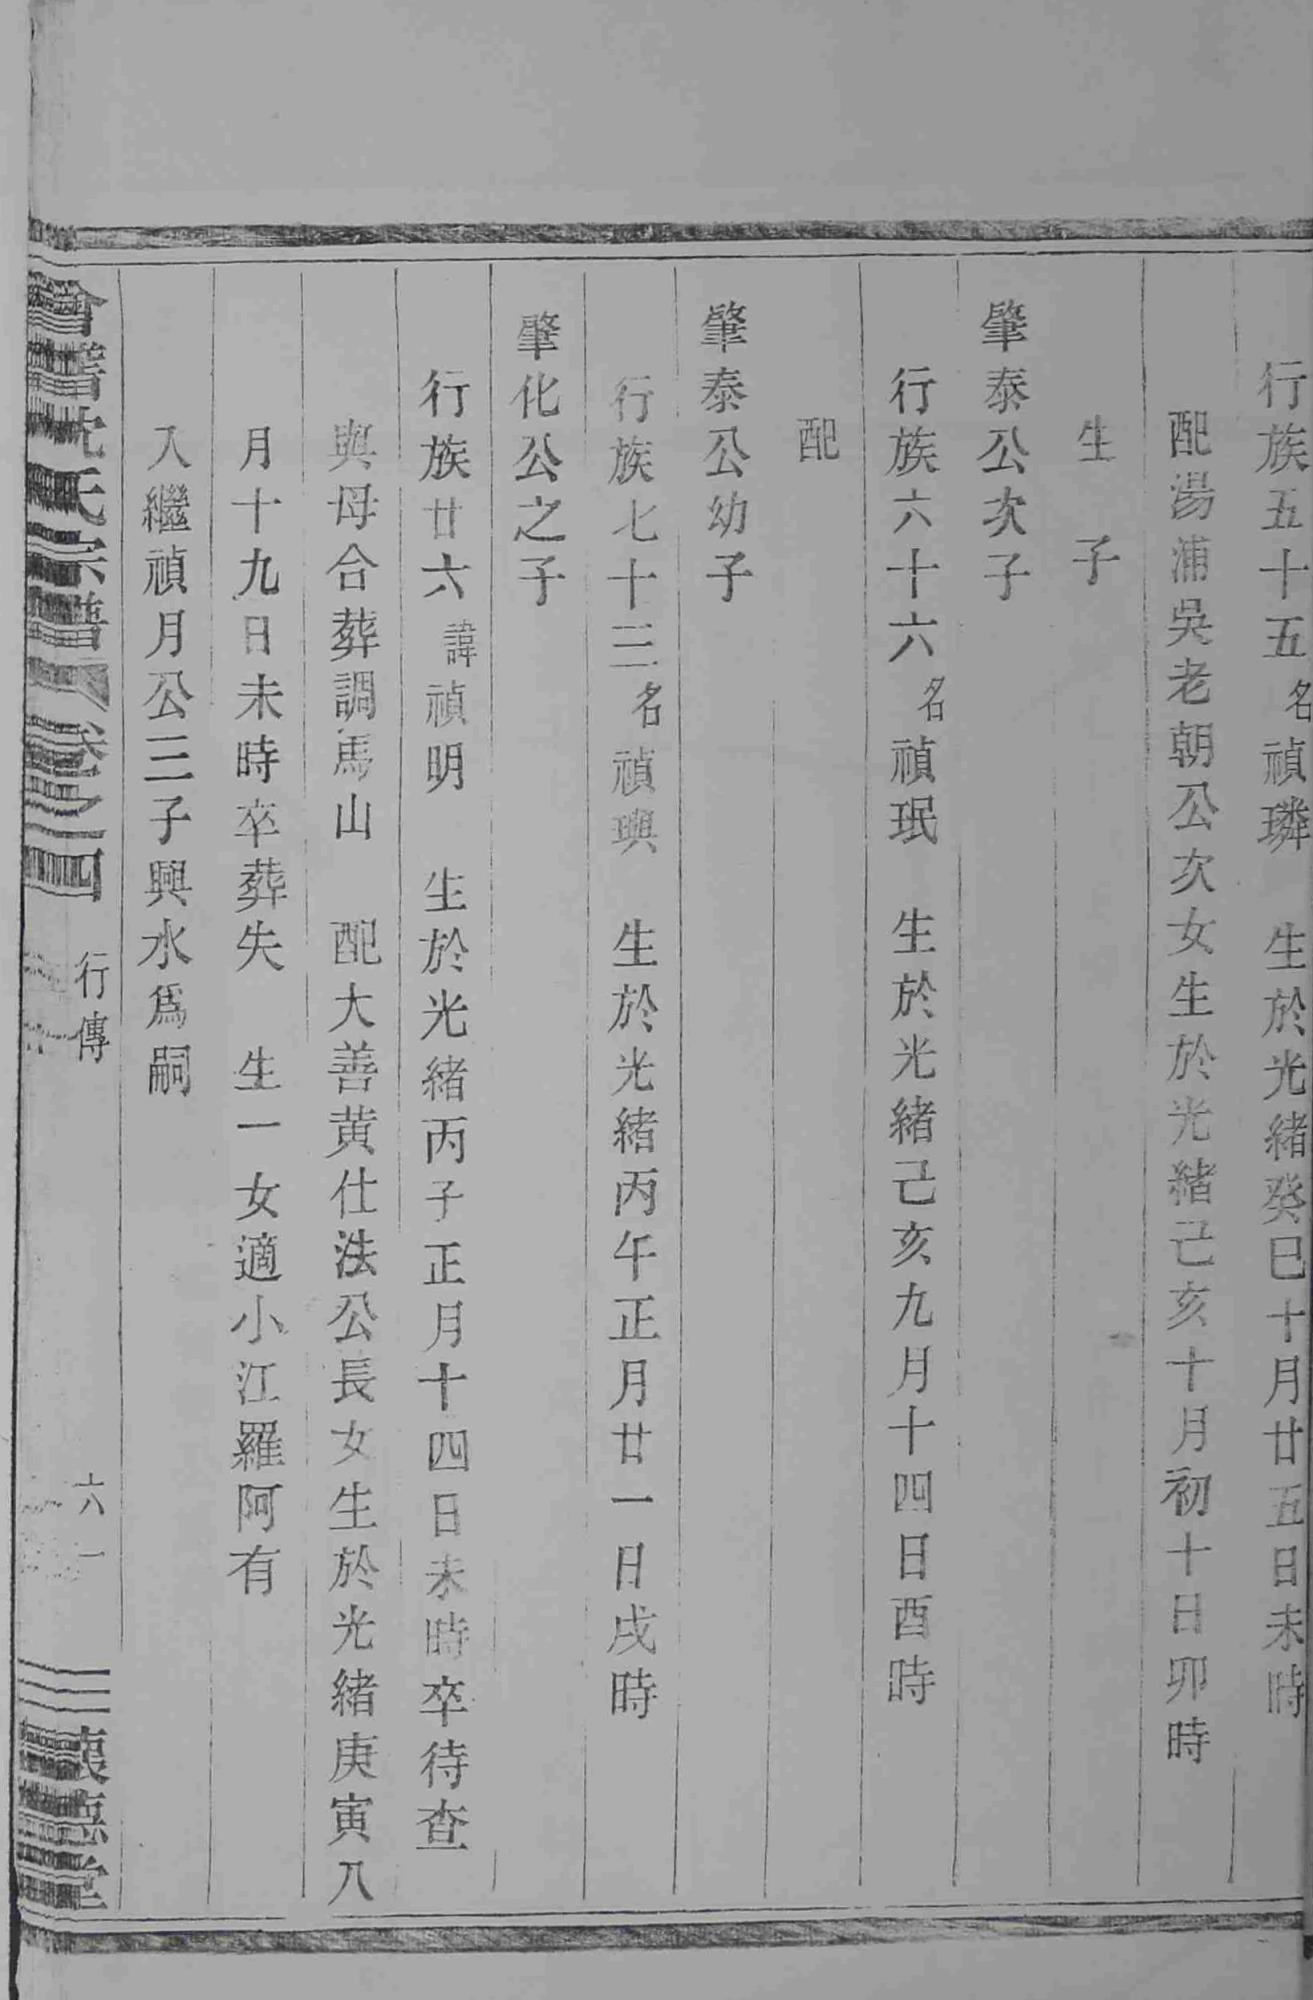 行族五十五名禎璘　生於光緒癸巳十月廿五日未時
配湯浦吳老朝公次女生於光緒己亥十月初十日卯時
生　子
肇泰公次子
行族六十六名禎珉　生於光緒己亥九月十四日酉時
配
肇泰公幼子
行族七十三名禎興　生於光緒丙午正月廿一日戌時
肇化公之子
行族廿六諱禎明　生於光緒丙子正月十四日未時卒待查
與母合葬調馬山　配大善黃仕法公長女生於光緒庚寅八
月十九日未時卒葬失　生一女適小江羅阿有
入繼禎月公三子興水爲嗣
會稽沈氏宗譜　卷之四　行傳　六一　三槐德堂